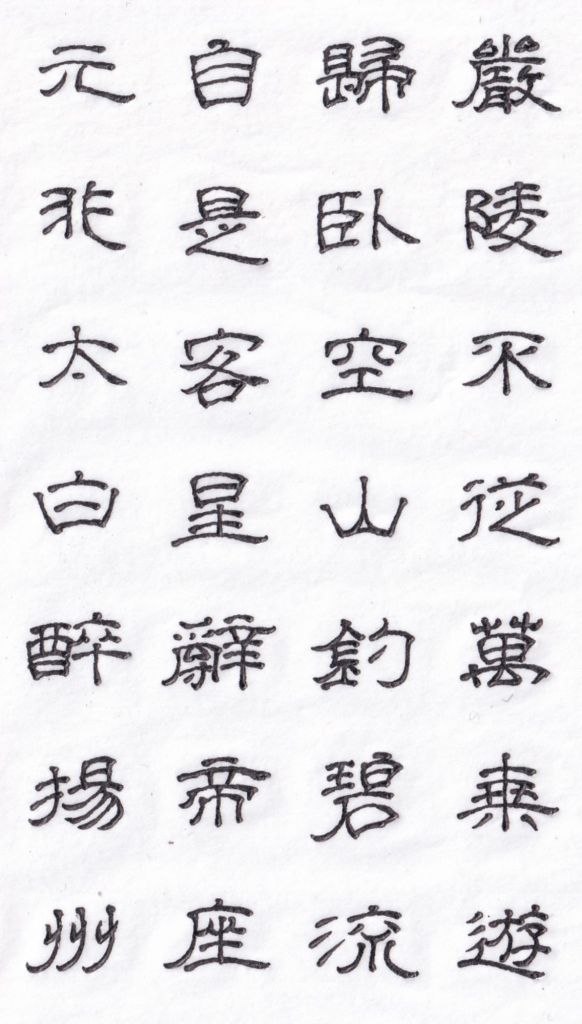 嚴陵不從萬乘遊
歸臥空山釣碧流
自是客星辭帝座
元非太白醉揚州